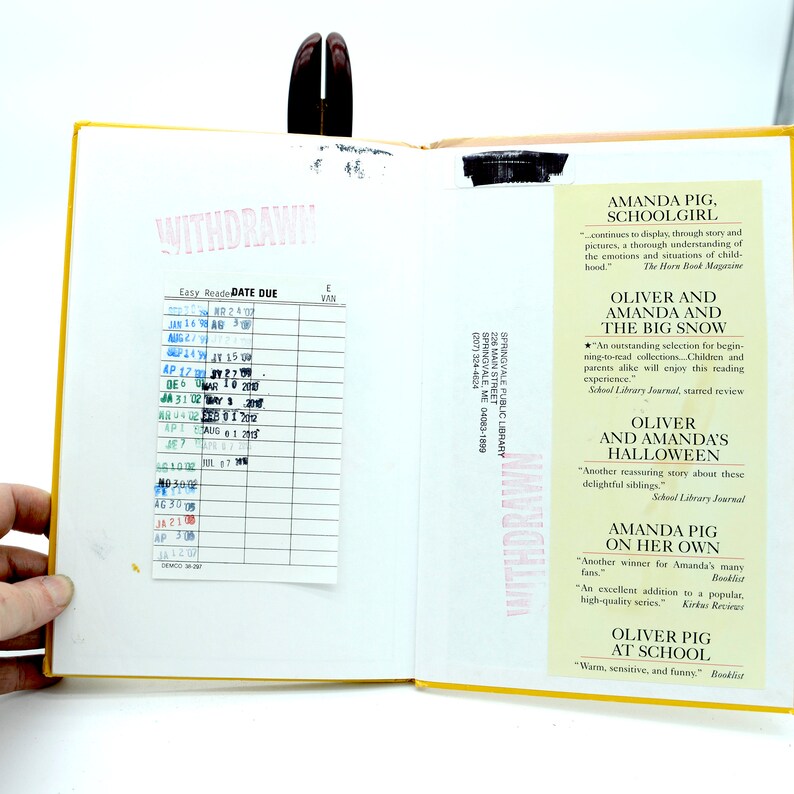 WITHDRAWN
Easy Reader DATE DUE
E
VAN
JAN 16 '98
AUG 27 '99
SEP 14 '99
AP 17
DE 6
JA 31 '02
MR 04 '02
AP 1
JE 7
AG 10 '02
NO 30 '02
AG 30
JA 21
AP 3
JA 12 '07
MR 24 '07
AG 3
JY 15
JY 27
MAR 10 2010
MAY 3
FEB 01 2012
AUG 01 2013
APR 07
JUL 07
DEMCO 38-297
SPRINGVALE PUBLIC LIBRARY
226 MAIN STREET
SPRINGVALE, ME 04083-1899
(207) 324-4624
WITHDRAWN
AMANDA PIG,
SCHOOLGIRL
“...continues to display, through story and
pictures, a thorough understanding of
the emotions and situations of child-
hood.” The Horn Book Magazine
OLIVER AND
AMANDA AND
THE BIG SNOW
★“An outstanding selection for begin-
ning-to-read collections....Children and
parents alike will enjoy this reading
experience.”
School Library Journal, starred review
OLIVER
AND AMANDA'S
HALLOWEEN
“Another reassuring story about these
delightful siblings.”
School Library Journal
AMANDA PIG
ON HER OWN
“Another winner for Amanda's many
fans.” Booklist
“An excellent addition to a popular,
high-quality series.” Kirkus Reviews
OLIVER PIG
AT SCHOOL
“Warm, sensitive, and funny.” Booklist